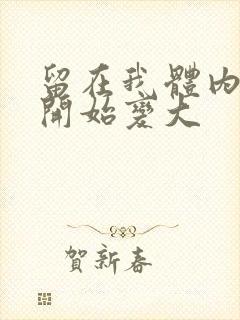 留在我體內
開始變大
賀新春